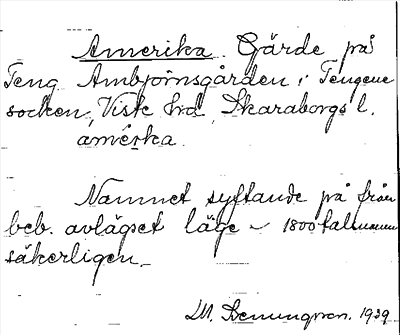 Amerika. Gärde på
Teng Ambjörnsgården i Tengene
socken, Viste hrd, Skaraborgs l.
amérka.
Namnet syftande på från
beb. avlägset läge – 1800talsnamn
säkerligen.
M. 1939